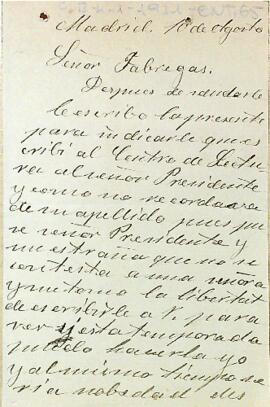 Madrid. 1º de Agosto
Señor Fabregas.
Despues de saludarle
le escribo la presente
para indicarle que es
cribí al Centro de Lectu
ra al señor Presidente
y como no recordara
de mi apellido puse
señor Presidente y
me estraña que no
contesta a una señora
y me tomo la libertad
de escribirle a V. para
ver si esta temporada
puedo hacerla yo
y al mismo tiempo se
ria nobedad